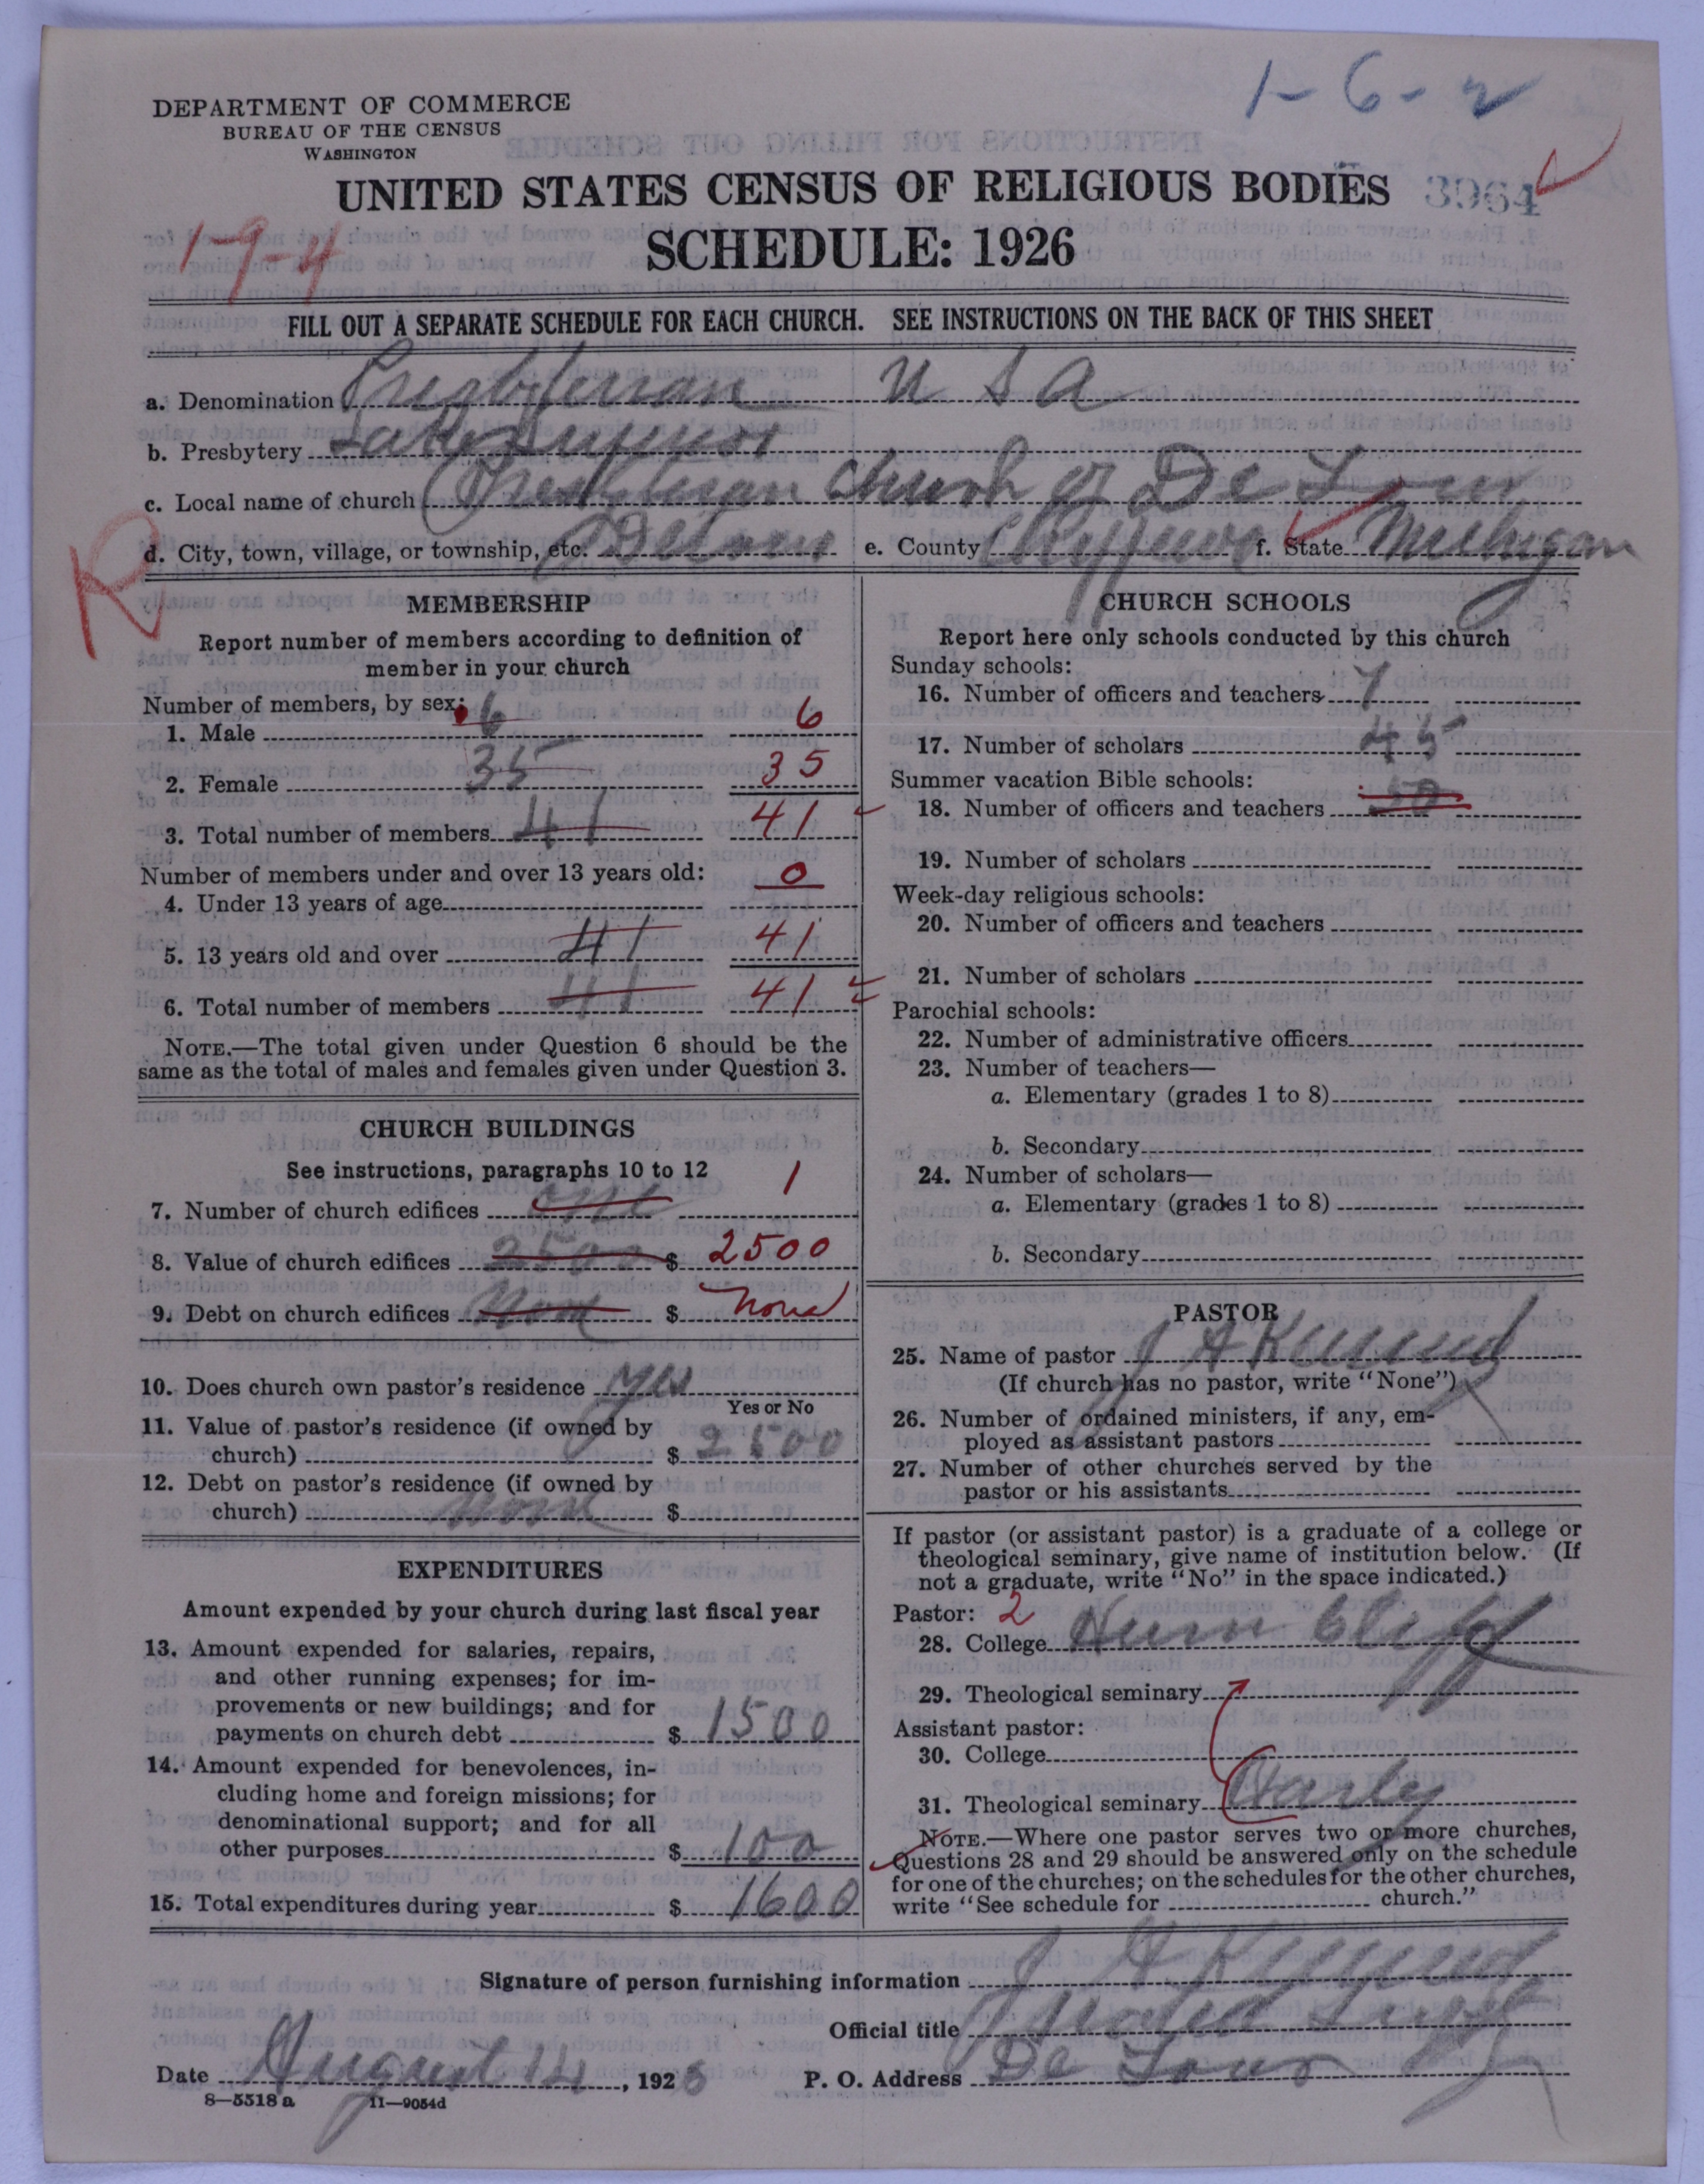 1-6-2
DEPARTMENT OF COMMERCE
BUREAU OF THE CENSUS
WASHINGTON
UNITED STATES CENSUS OF RELIGIOUS BODIES 3964
SCHEDULE: 1926
1-9-4
FILL OUT A SEPARATE SCHEDULE FOR EACH CHURCH. SEE INSTRUCTIONS ON THE BACK OF THIS SHEET
a. Denomination Presbyterian U S A
b. Presbytery Lake Superior
c. Local name of church Presbyterian Church of De Tour
d. City, town, village, or township, etc. Detour e. County Chippewa f. State Michigan
R
MEMBERSHIP
Report number of members according to definition of
member in your church
Number of members, by sex:
1. Male 6 6
2. Female 35 35
3. Total number of members 41 41
Number of members under and over 13 years old:
4. Under 13 years of age 0
5. 13 years old and over 41 41
6. Total number of members 41 41
NOTE.—The total given under Question 6 should be the
same as the total of males and females given under Question 3.
CHURCH BUILDINGS
See instructions, paragraphs 10 to 12
7. Number of church edifices one 1
8. Value of church edifices 2500 $ 2500
9. Debt on church edifices None $ None
10. Does church own pastor's residence yes
Yes or No
11. Value of pastor's residence (if owned by
church) $ 2500
12. Debt on pastor's residence (if owned by
church) None $
EXPENDITURES
Amount expended by your church during last fiscal year
13. Amount expended for salaries, repairs,
and other running expenses; for im-
provements or new buildings; and for
payments on church debt $ 1500
14. Amount expended for benevolences, in-
cluding home and foreign missions; for
denominational support; and for all
other purposes $ 100
15. Total expenditures during year $ 1600
CHURCH SCHOOLS
Report here only schools conducted by this church
Sunday schools:
16. Number of officers and teachers 7
17. Number of scholars 45
Summer vacation Bible schools:
18. Number of officers and teachers 50
19. Number of scholars
Week-day religious schools:
20. Number of officers and teachers
21. Number of scholars
Parochial schools:
22. Number of administrative officers
23. Number of teachers—
a. Elementary (grades 1 to 8)
b. Secondary
24. Number of scholars—
a. Elementary (grades 1 to 8)
b. Secondary
PASTOR
25. Name of pastor J A
(If church has no pastor, write "None")
26. Number of ordained ministers, if any, em-
ployed as assistant pastors
27. Number of other churches served by the
pastor or his assistants
If pastor (or assistant pastor) is a graduate of a college or
theological seminary, give name of institution below. (If
not a graduate, write "No" in the space indicated.)
Pastor: 2
28. College
29. Theological seminary
Assistant pastor:
30. College
31. Theological seminary
NOTE.—Where one pastor serves two or more churches,
Questions 28 and 29 should be answered only on the schedule
for one of the churches; on the schedules for the other churches,
write "See schedule for church."
Signature of person furnishing information J A
Official title
Date August 14, 1926 P. O. Address De Tour
8—5518 a 11—9054d